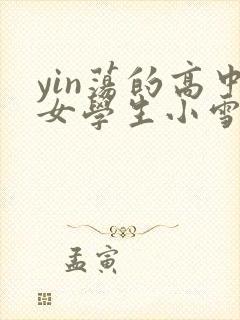 yin蕩的高中
女學生小雪
孟寅